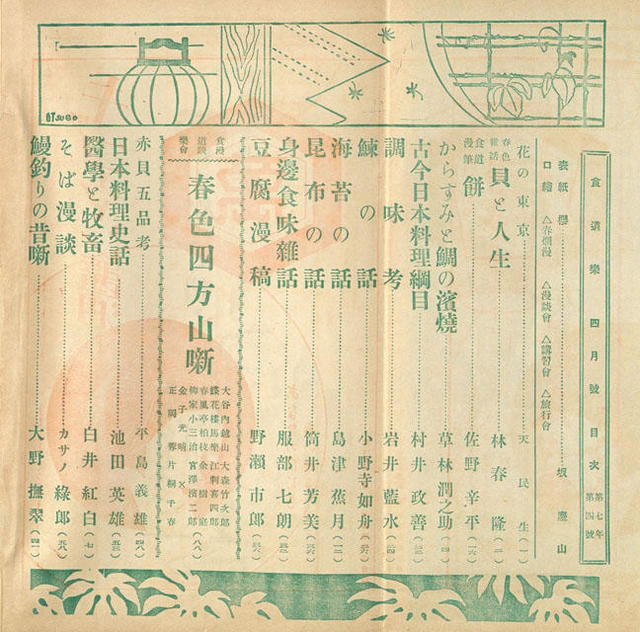 食道樂 四月號 目次 第七年 第四號
表紙 櫻 坂 慶山
口繪 △春爛漫 △漫談會 △講習會 △旅行會
花の東京 天民生 (一)
春色雜話 貝と人生 林春隆 (二)
食道漫筆 餅 佐野辛平 (一六)
からすみと鯛の濱燒 草林潤之助
古今日本料理綱目 村井政善
調味考 岩井藍水
鰊の話 小野寺如舟
海苔の話 島津蕉月
昆布の話 筒井芳美
身邊食味雜話 服部七朗
豆腐漫稿 野瀬市郎
食道樂漫談會
春色四方山噺 (八八)
大谷內越山 大森竹次郎
蝶花樓馬樂 江刺喜四郎
春風亭柏枝 余樹庭
柳家小三治 宮澤濱二郎
金子光晴 ×
正岡蓉 片桐千春
赤貝五品考 平島義雄 (四八)
日本料理史話 池田英雄 (五三)
醫學と牧畜 白井紅白 (七)
そば漫談 カサノ綠郎 (五八)
鰻釣りの昔噺 大野撫翠 (四一)